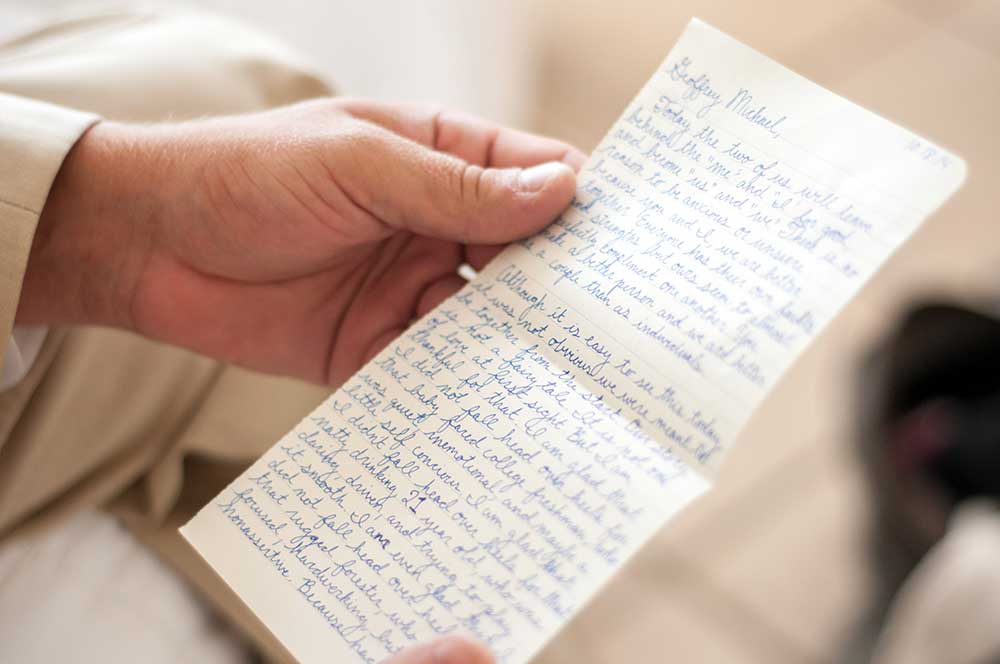 Geoffrey Michael,
Today the two of us will leave
behind the "me" and "I" for good
and become "us" and "we". There is no
reason to be anxious or unsure
because you and I, we are better
together. Everyone has their own faults
and strengths but ours seem to
compliment one another. You
make me a better person and we are better
as a couple than as individuals.
Although it is easy to see this today
it was not obvious we were meant to
be together from the start. Our story
is not a fairytale. It is not one
of love at first sight. But I am
thankful for that. I am glad that
I did not fall head over heels for
that baby faced college freshman who
was quiet, unemotional and maybe a
little self conscious. I am glad that
I didn't fall head over heels for that
natty drinking 21 year old who was
driven and trying to play
it smooth. I am even glad that I
did not fall head over heels for
that rugged forester, who was
focused, hardworking, but
nonassertive. Because had